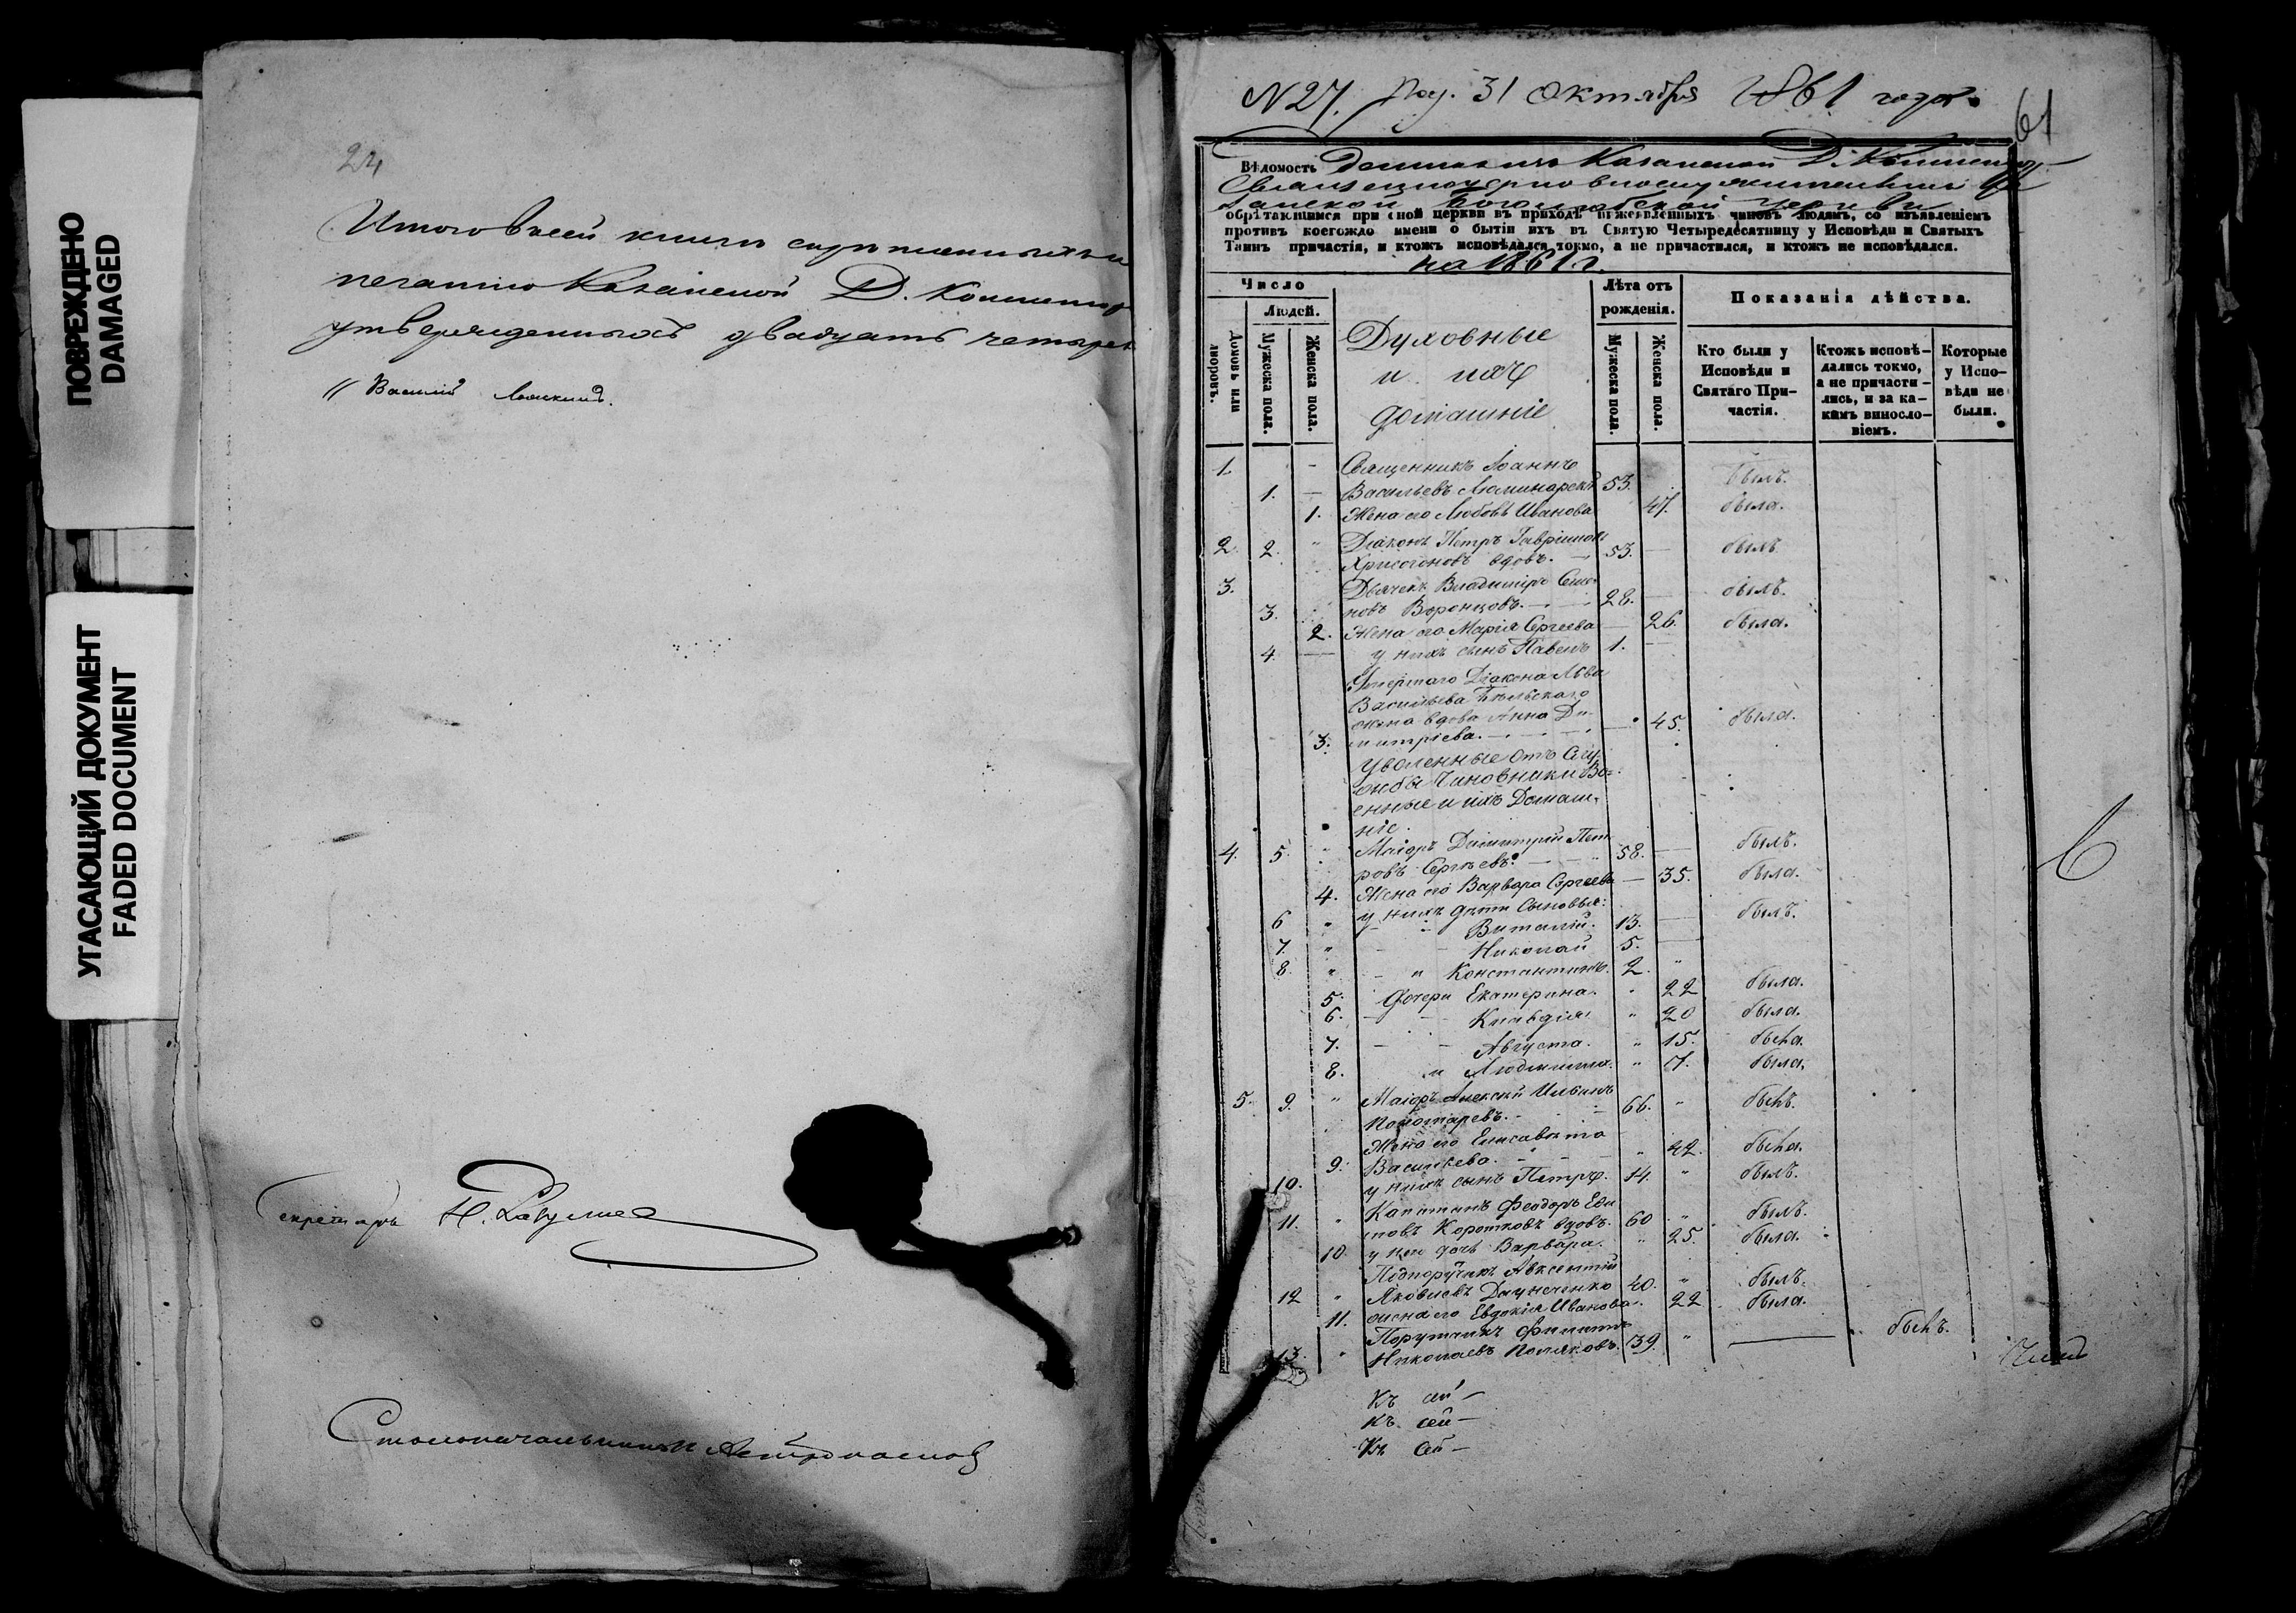 ПОВРЕЖДЕНО
DAMAGED
УГАСАЮЩИЙ ДОКУМЕНТ
FADED DOCUMENT
24
Итого въ сей книгѣ скрѣпленныхъ и
печатью Казанской Д. Консисторіи
утвержденныхъ двадцать четыре
Василій
Секретарь Н.
Столоначальникъ
N 27. Пол. 31 Октября 1861 года.
61
Вѣдомость Казанской Д. Консисторіи
Священноцерковнослужителями
Богоявленской церкви
обрѣтающимся при сной церкви въ приходѣ нижеявленныхъ чиновъ людямъ, со изъявленіемъ
противъ коегождо имени о бытіи ихъ въ Святую Четыредесятницу у Исповѣди и Святыхъ
Таинъ причастія, и ктожъ исповѣдался токмо, а не причастился, и ктожъ не исповѣдался.
на 1861 г.
Число
Домовъ или дворовъ.
Людей.
Мужеска пола.
Женска пола.
Духовные
и ихъ
домашніе
Лѣта отъ рожденія.
Мужеска пола.
Женска пола.
Показанія дѣйства.
Кто были у Исповѣди и Святаго Причастія.
Ктожъ исповѣдались токмо, а не причастились, и за какимъ винословіемъ.
Которые у Исповѣди не были.
1 Священникъ Іоаннъ
1. Васильевъ 53. былъ.
1. Жена его Любовь Иванова 47. была.
2. 2. Діаконъ Петръ Гавріиловъ
Хрисогоновъ вдовъ. 53. былъ
3. Дьячекъ Владиміръ Семе
3. новъ Воронцовъ. 28. былъ.
2. Жена его Марія Сергеева 26. была.
4. у нихъ сынъ Павелъ 1.
Умершаго Діакона Льва
Васильева Бѣльскаго
жена вдова Анна Ди
3. митріева. 45. была.
Уволенные отъ Слу
жбы Чиновники Во
енные и ихъ Домаш
ніе.
4. 5. Маіоръ Димитрій Пет
ровъ Сергѣевъ. 58. былъ.
4. Жена его Варвара Сергеева 35. была.
у нихъ дѣти Сыновья:
6 Виталій. 13. былъ.
7. Николай 5.
8. и Константинъ. 2.
5. Дочери Екатерина. 22 была.
6. Клавдія 20 была.
7. Августа. 15. была.
8. и Людмила. 7. была.
5. 9. Маіоръ Алексѣй Ильинъ
Пономаревъ. 66. былъ.
Жена его Елисавета
9. Васильева. 42. была.
10. у нихъ сынъ Петръ. 14. былъ.
Капитанъ Феодоръ Еѳи
11. мовъ Коротковъ вдовъ. 60 былъ.
10. у него дочь Варвара. 25. была.
Подпоручикъ Авксентій
12 Яковлевъ 40. былъ.
11. жена его Евдокія Иванова. 22 была.
Порутчикъ Филиппъ
13. Николаевъ Поляковъ. 39. былъ.
Къ сей
Къ сей
Къ сей